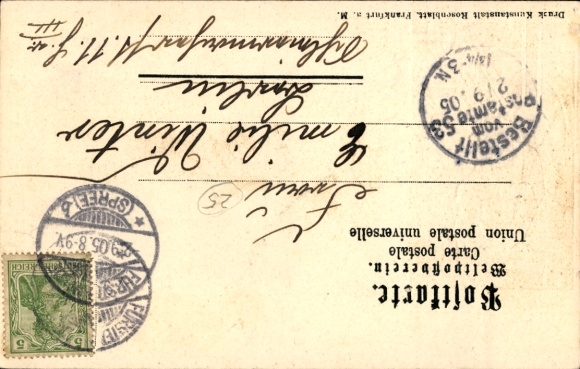 Postkarte.
Weltpostverein.
Carte postale
Union postale universelle
Frau
Emilie Winter
Berlin
11. III
25
Bestellt
vom
Postamte 53
2/9.05
3N
FÜRST
(SPREE) b
2.9.05.8-9V.
REICH
5
5
Druck Kunstanstalt Rosenblatt, Frankfurt a. M.